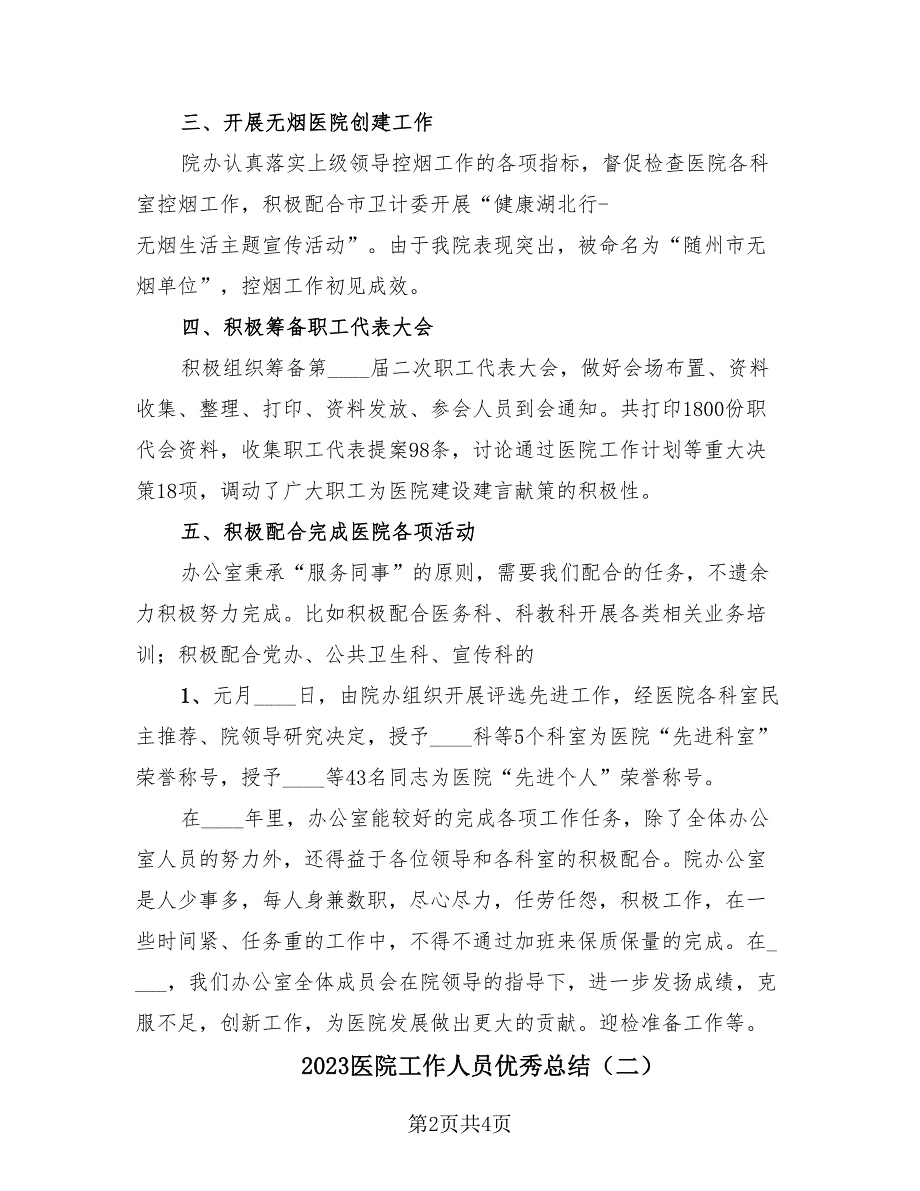 三、开展无烟医院创建工作
院办认真落实上级领导控烟工作的各项指标，督促检查医院各科
室控烟工作，积极配合市卫计委开展“健康湖北行-
无烟生活主题宣传活动”。由于我院表现突出，被命名为“随州市无
烟单位”，控烟工作初见成效。
四、积极筹备职工代表大会
积极组织筹备第____届二次职工代表大会，做好会场布置、资料
收集、整理、打印、资料发放、参会人员到会通知。共打印1800份职
代会资料，收集职工代表提案98条，讨论通过医院工作计划等重大决
策18项，调动了广大职工为医院建设建言献策的积极性。
五、积极配合完成医院各项活动
办公室秉承“服务同事”的原则，需要我们配合的任务，不遗余
力积极努力完成。比如积极配合医务科、科教科开展各类相关业务培
训；积极配合党办、公共卫生科、宣传科的
1、元月____日，由院办组织开展评选先进工作，经医院各科室民
主推荐、院领导研究决定，授予____科等5个科室为医院“先进科室”
荣誉称号，授予____等43名同志为医院“先进个人”荣誉称号。
在____年里，办公室能较好的完成各项工作任务，除了全体办公
室人员的努力外，还得益于各位领导和各科室的积极配合。院办公室
是人少事多，每人身兼数职，尽心尽力，任劳任怨，积极工作，在一
些时间紧、任务重的工作中，不得不通过加班来保质保量的完成。在_
___，我们办公室全体成员会在院领导的指导下，进一步发扬成绩，克
服不足，创新工作，为医院发展做出更大的贡献。迎检准备工作等。
2023医院工作人员优秀总结（二）
第2页共4页